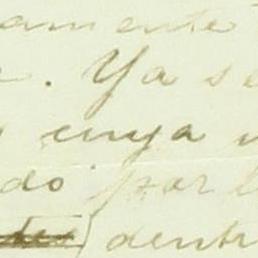 amente
. Ya se
cuya
do por l
dentr